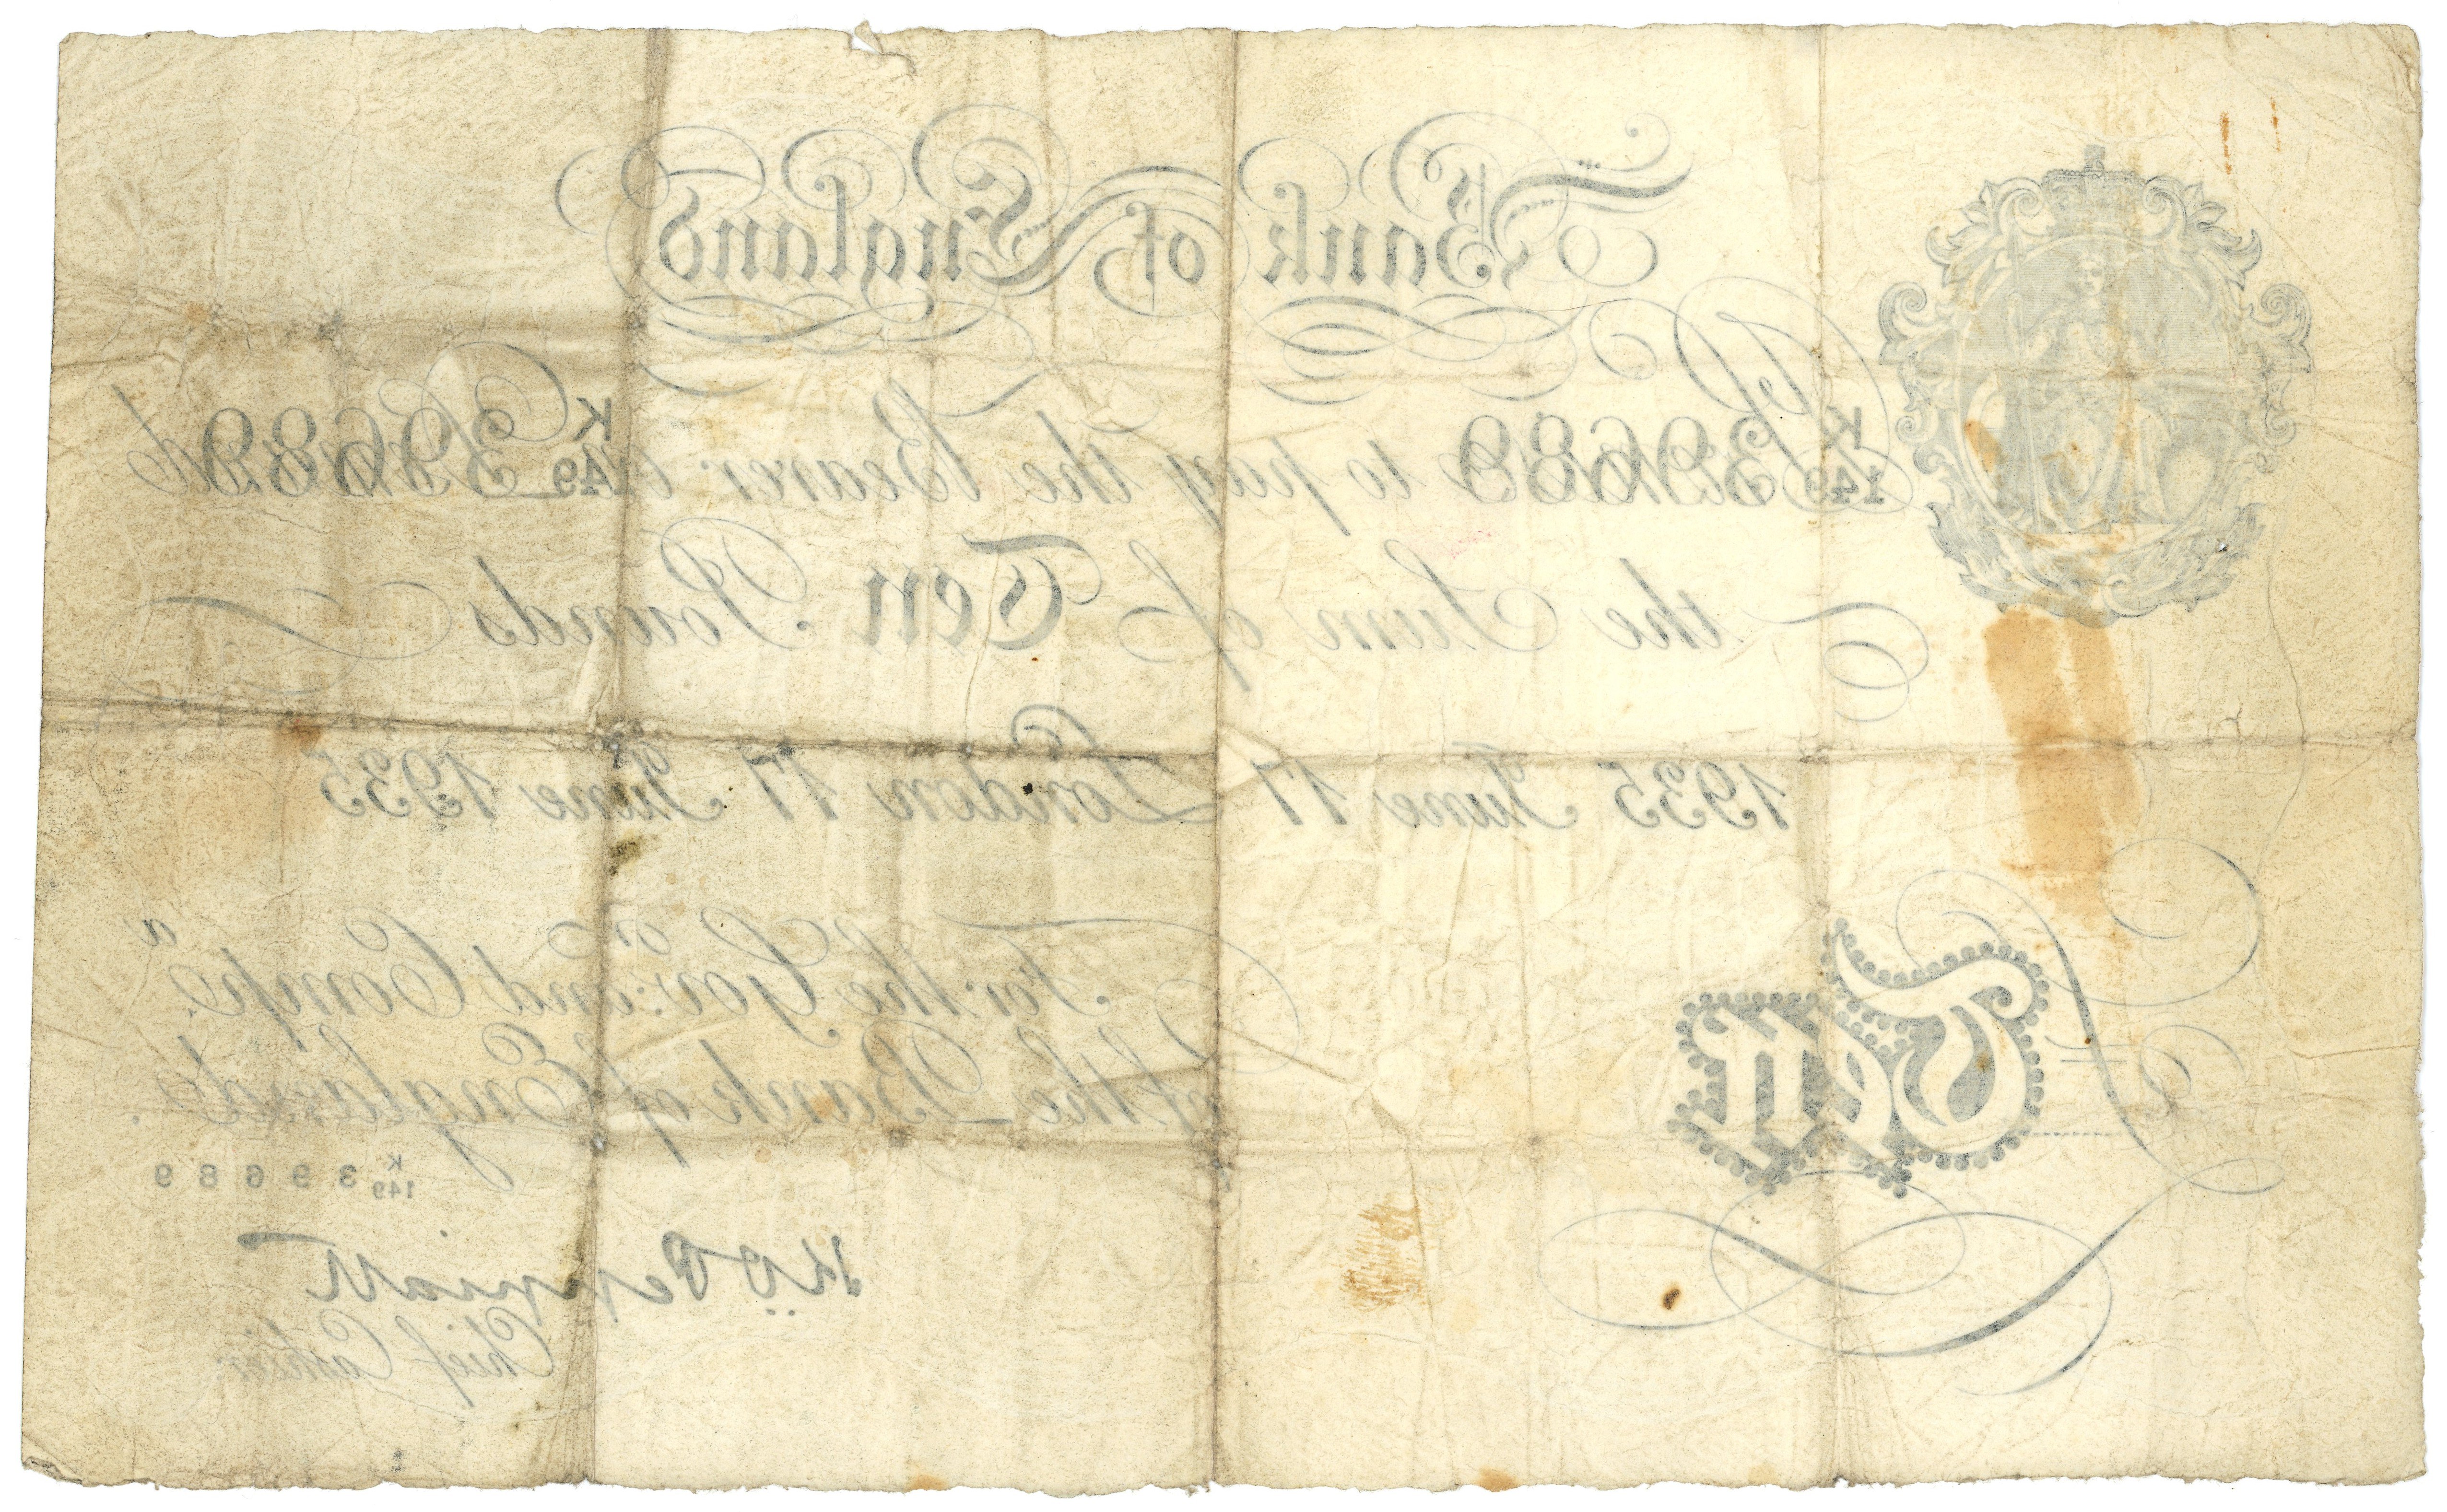 Bank of England
K 149 39689 K 149 39689
Promise to pay the Bearer on Demand
the Sum of Ten Pounds
1935 June 17 London 17 June 1935
For the Gov.r and Comp.a
of the Bank of England.
Ten
K 149 39689
Chief Cashier